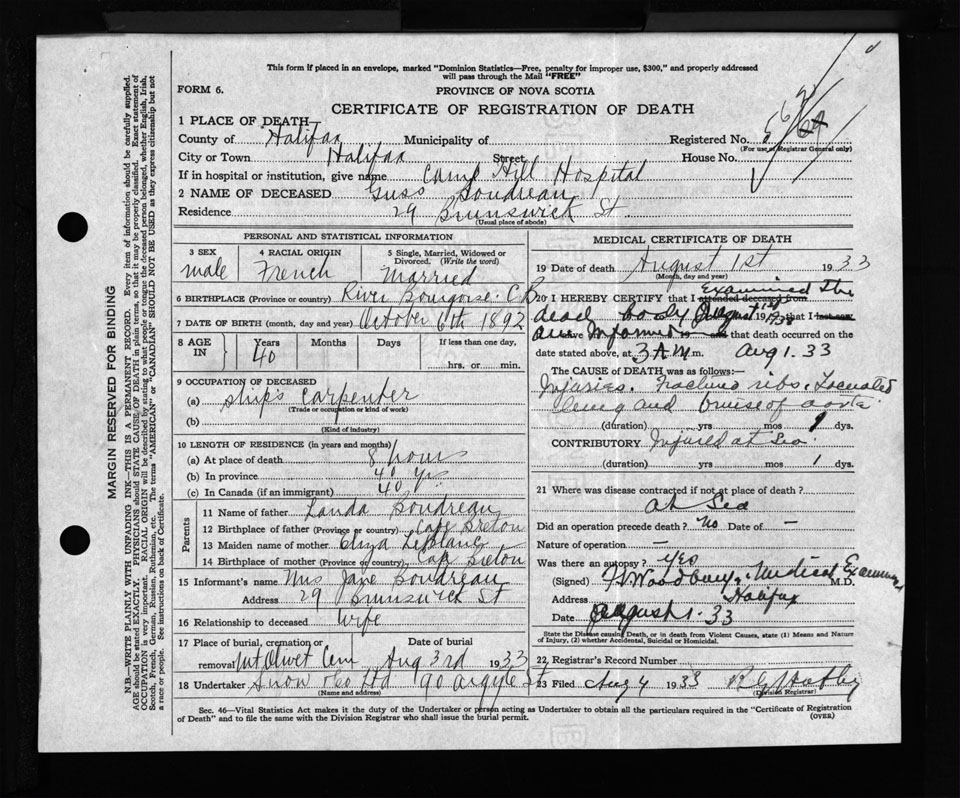 This form if placed in an envelope, marked "Dominion Statistics—Free, penalty for improper use, $300," and properly addressed
will pass through the Mail "FREE"
FORM 6.
PROVINCE OF NOVA SCOTIA
CERTIFICATE OF REGISTRATION OF DEATH
1 PLACE OF DEATH
County of Halifax Municipality of Registered No.
(For use of Registrar General only)
City or Town Halifax Street House No.
If in hospital or institution, give name Camp Hill Hospital
2 NAME OF DECEASED Guss Boudreau
Residence 29 Brunswick St
(Usual place of abode)
PERSONAL AND STATISTICAL INFORMATION
3 SEX 4 RACIAL ORIGIN 5 Single, Married, Widowed or
Divorced. (Write the word)
male French Married
6 BIRTHPLACE (Province or country) River Bourgoise. C.B
7 DATE OF BIRTH (month, day and year) October 6th 1892
8 AGE IN Years Months Days If less than one day,
40 hrs. or min.
9 OCCUPATION OF DECEASED
(a) ships carpenter
(Trade or occupation or kind of work)
(b)
(Kind of industry)
10 LENGTH OF RESIDENCE (in years and months)
(a) At place of death 8 hours
(b) In province 40 yrs
(c) In Canada (if an immigrant) 40 yrs
Parents
11 Name of father Landa Boudreau
12 Birthplace of father (Province or country) Cape Breton
13 Maiden name of mother Eliza LeBlanc
14 Birthplace of mother (Province or country) Cape Breton
15 Informant's name Mrs Jane Boudreau
Address 29 Brunswick St
16 Relationship to deceased wife
17 Place of burial, cremation or Date of burial
removal Mt Olivet Cem Aug 3rd 1933
18 Undertaker Snow & Co Ltd 90 Argyle St
(Name and address)
MEDICAL CERTIFICATE OF DEATH
19 Date of death August 1st 1933
(Month, day and year)
Examined the
20 I HEREBY CERTIFY that I attended deceased from
dead body August 1st 1933 that I last saw
alive Information and that death occurred on the
date stated above, at 3 A.M. m. Aug 1. 33
The CAUSE of DEATH was as follows:—
Injuries. Fractured ribs, Lacerated
lung and bruise of aorta
(duration) yrs mos 1 dys.
CONTRIBUTORY Injured at Sea.
(duration) yrs mos 1 dys.
21 Where was disease contracted if not at place of death?
At Sea
Did an operation precede death? No Date of —
Nature of operation —
Was there an autopsy? Yes
(Signed) Woodbury, Medical Examiner M.D.
Address Halifax
Date August 1. 33
State the Disease causing Death, or in death from Violent Causes, state (1) Means and Nature
of Injury, (2) whether Accidental, Suicidal or Homicidal.
22 Registrar's Record Number
23 Filed Aug 4 1933
(Division Registrar)
Sec. 46—Vital Statistics Act makes it the duty of the Undertaker or person acting as Undertaker to obtain all the particulars required in the "Certificate of Registration
of Death" and to file the same with the Division Registrar who shall issue the burial permit.
(OVER)
MARGIN RESERVED FOR BINDING
N.B.—WRITE PLAINLY WITH UNFADING INK—THIS IS A PERMANENT RECORD. Every item of information should be carefully supplied.
AGE should be stated EXACTLY. PHYSICIANS should STATE CAUSE OF DEATH in plain terms, so that it may be properly classified. Exact statement of
OCCUPATION is very important. RACIAL ORIGIN will be described by stating to what people or tongue the deceased person belonged, whether English, Irish,
Scotch, French, German, Russian, Ruthenian, etc. The terms "AMERICAN" or "CANADIAN" SHOULD NOT BE USED as they express citizenship but not
a race or people. See instructions on back of Certificate.